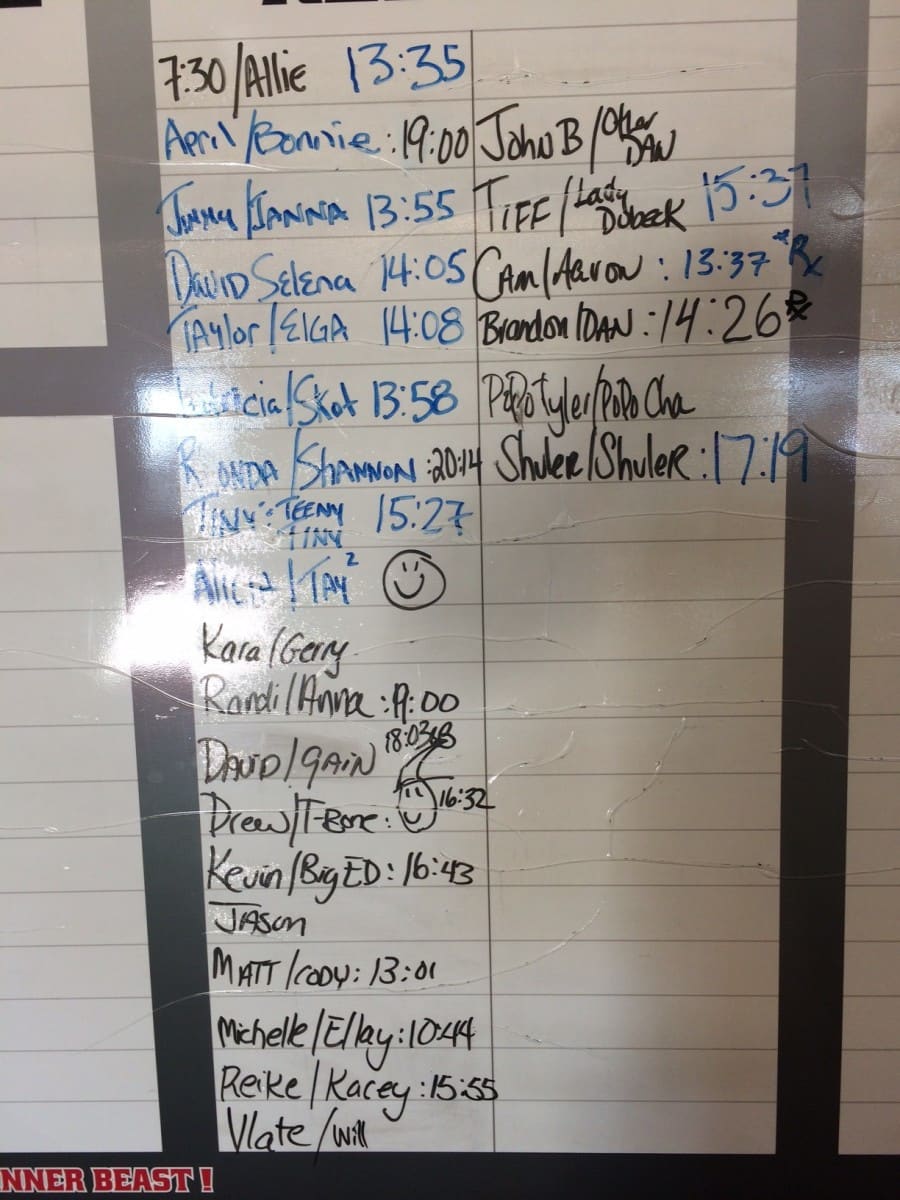 7:30/Allie 13:35
April/Bonnie: 19:00
Jimmy/IANNA 13:55
DAVID Selena 14:05
TAylor/ElGA 14:08
/Skot 13:58
/SHANNON: 20:14
TINY: TEENY TINY 15:27
Alicia/TAY²
Kara/Gerry
Randi/Anna: 9:00
DAVID/GAIN 18:03
Drew/T-Bone: 16:32
Kevin/Big ED: 16:43
JASon
MATT/CODY: 13:01
Michelle/Ellay: 10:44
Reike/Kacey: 15:55
Vlate/Will
John B/Other DAN
TIFF/Lady Dubeck 15:37
CAM/Aaron: 13:37 *Rx
Brandon/DAN: 14:26 Rx
PoPo Tyler/PoPo Cha
Shuler/Shuler: 17:19
NNER BEAST!